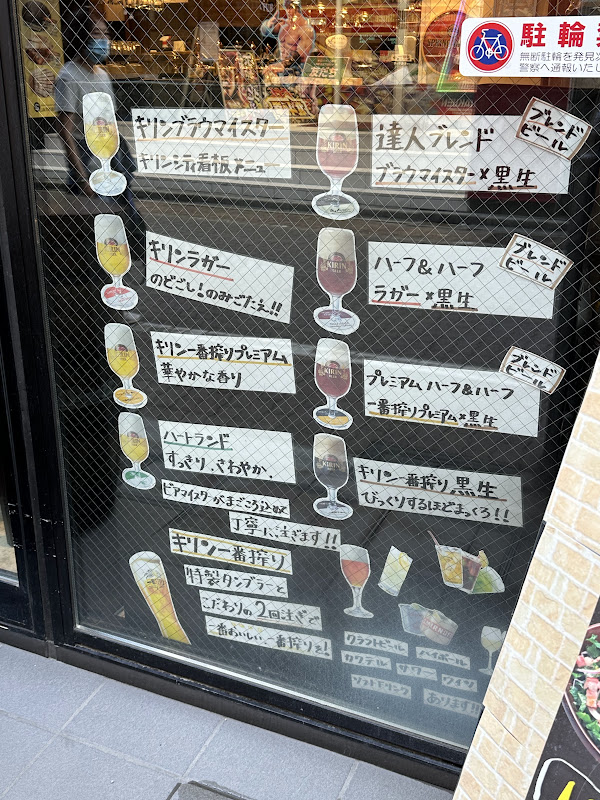 駐輪
無断駐輪を発見次
警察へ通報いたし
キリンブラウマイスター
キリンシティ看板メニュー
達人ブレンド
ブラウマイスター×黒生
ブレンド
ビール
キリンラガー
のどごし!のみごたえ!!
ハーフ&ハーフ
ラガー×黒生
ブレンド
ビール
キリン一番搾りプレミアム
華やかな香り
プレミアム ハーフ&ハーフ
一番搾りプレミアム×黒生
ブレンド
ビール
ハートランド
すっきり、さわやか、
キリン一番搾り 黒生
びっくりするほどまっくろ!!
ビアマイスターがまごころ込めて
丁寧に注ぎます!!
キリン一番搾り
特製タンブラーと
こだわりの2回注ぎで
一番おいしい一番搾りを!
クラフトビール
ハイボール
カクテル
サワー
ワイン
ソフトドリンク
あります!!
KIRIN
KIRIN
KIRIN
KIRIN